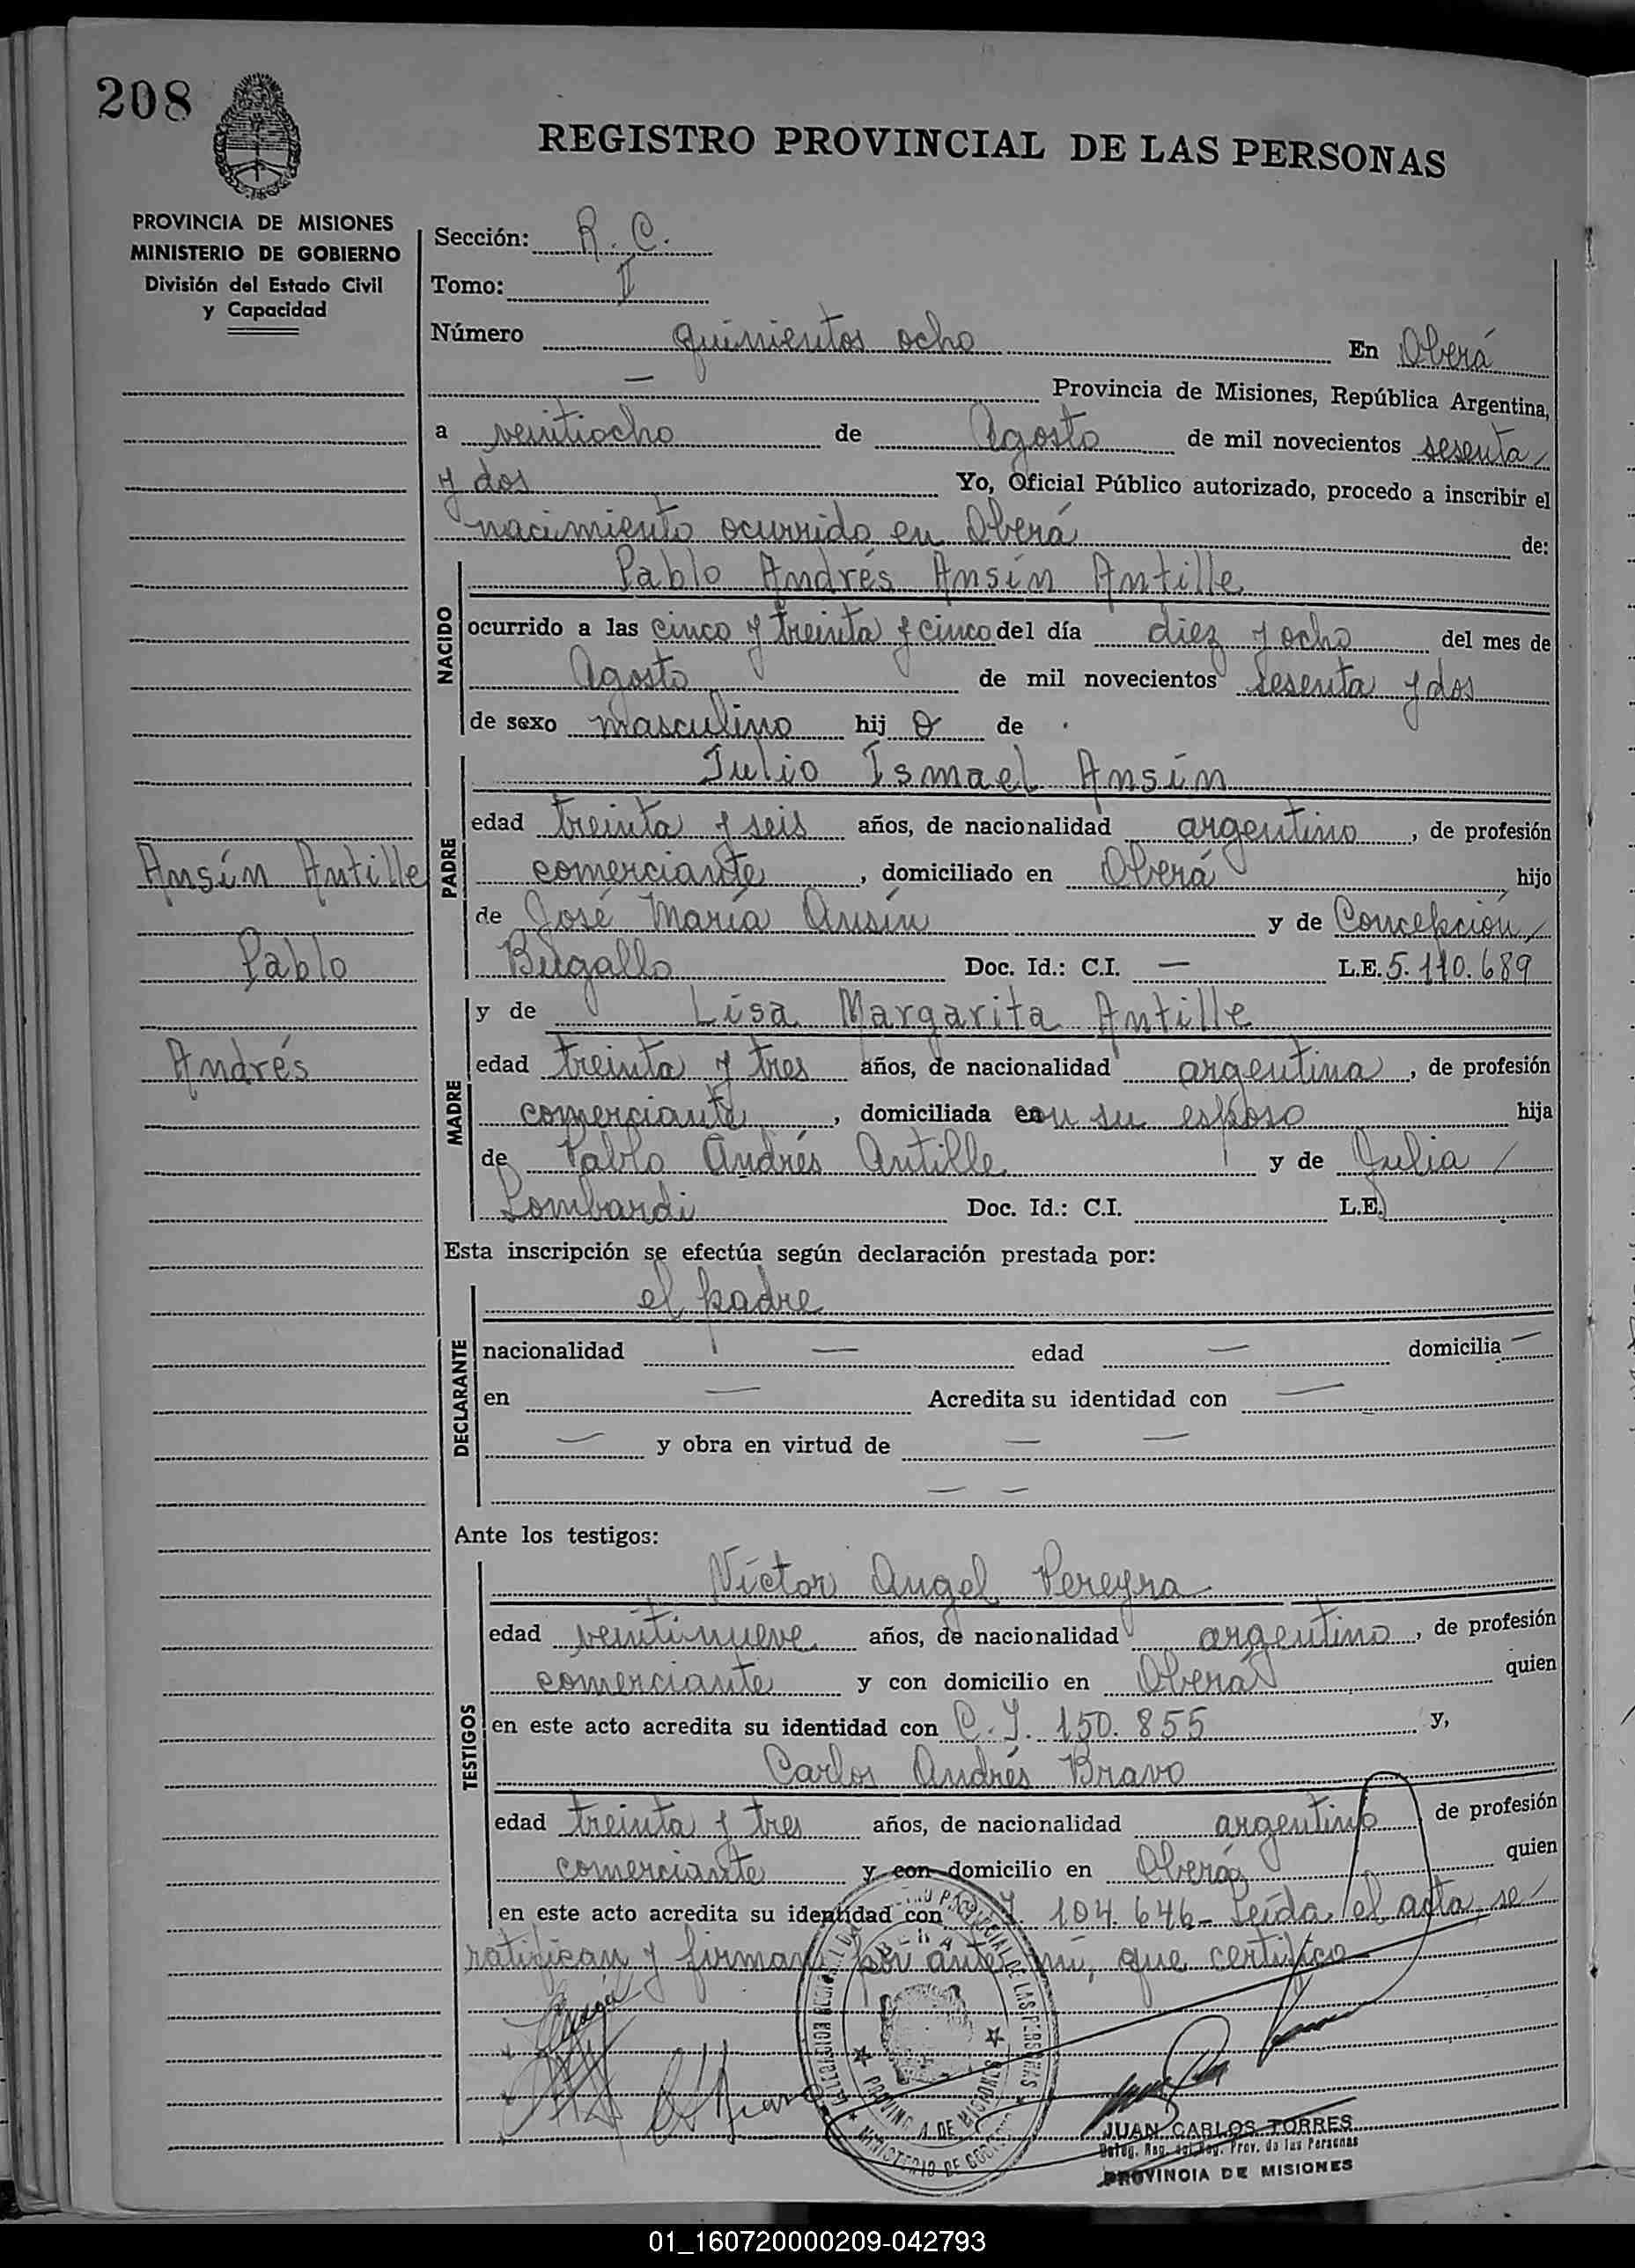 208
REGISTRO PROVINCIAL DE LAS PERSONAS
PROVINCIA DE MISIONES
MINISTERIO DE GOBIERNO
División del Estado Civil
y Capacidad
Sección: R. C.
Tomo: II
Número quinientos ocho En Oberá
— Provincia de Misiones, República Argentina,
a veintiocho de Agosto de mil novecientos sesenta
y dos Yo, Oficial Público autorizado, procedo a inscribir el
nacimiento ocurrido en Oberá de:
NACIDO
Pablo Andrés Ansín Antille
ocurrido a las cinco y treinta y cinco del día diez y ocho del mes de
Agosto de mil novecientos sesenta y dos
de sexo masculino hij o de
PADRE
Julio Ismael Ansín
edad treinta y seis años, de nacionalidad argentino, de profesión
comerciante, domiciliado en Oberá hijo
de José María Ansín y de Concepción
Bugallo Doc. Id.: C.I. — L.E. 5.110.689
Ansín Antille
Pablo
Andrés
MADRE
y de Lisa Margarita Antille
edad treinta y tres años, de nacionalidad argentina, de profesión
comerciante, domiciliada con su esposo hija
de Pablo Andrés Antille y de Julia
Lombardi Doc. Id.: C.I. L.E.
Esta inscripción se efectúa según declaración prestada por:
DECLARANTE
el padre
nacionalidad — edad — domicilia —
en — Acredita su identidad con —
— y obra en virtud de — —
— —
Ante los testigos:
TESTIGOS
Víctor Angel Pereyra
edad veintinueve años, de nacionalidad argentino, de profesión
comerciante y con domicilio en Oberá quien
en este acto acredita su identidad con C.I. 150.855 y,
Carlos Andrés Bravo
edad treinta y tres años, de nacionalidad argentino de profesión
comerciante y con domicilio en Oberá quien
en este acto acredita su identidad con 104.646- Leída el acta, se
ratifican y firman por ante mí, que certifico
JUAN CARLOS TORRES
Prov. de las Personas
PROVINCIA DE MISIONES
01_160720000209-042793